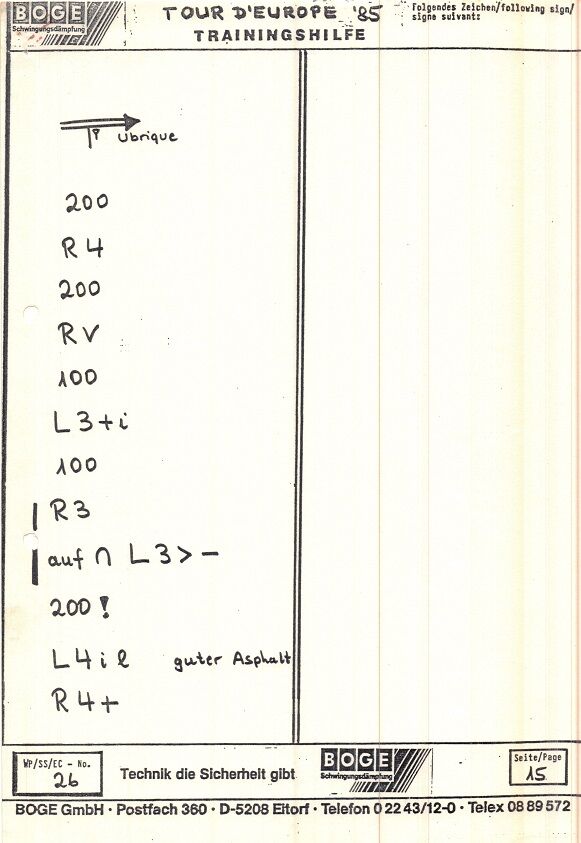 BOGE
Schwingungsdämpfung
TOUR D'EUROPE '85
TRAININGSHILFE
Folgendes Zeichen/following sign/
signe suivant:
Ubrique
200
R 4
200
R V
100
L 3 + i
100
R 3
auf ∩ L 3 > -
200 !
L 4 i l guter Asphalt
R 4 +
WP/SS/EC - No.
26
Technik die Sicherheit gibt
BOGE
Schwingungsdämpfung
Seite/Page
15
BOGE GmbH · Postfach 360 · D-5208 Eitorf · Telefon 0 22 43/12-0 · Telex 08 89 572